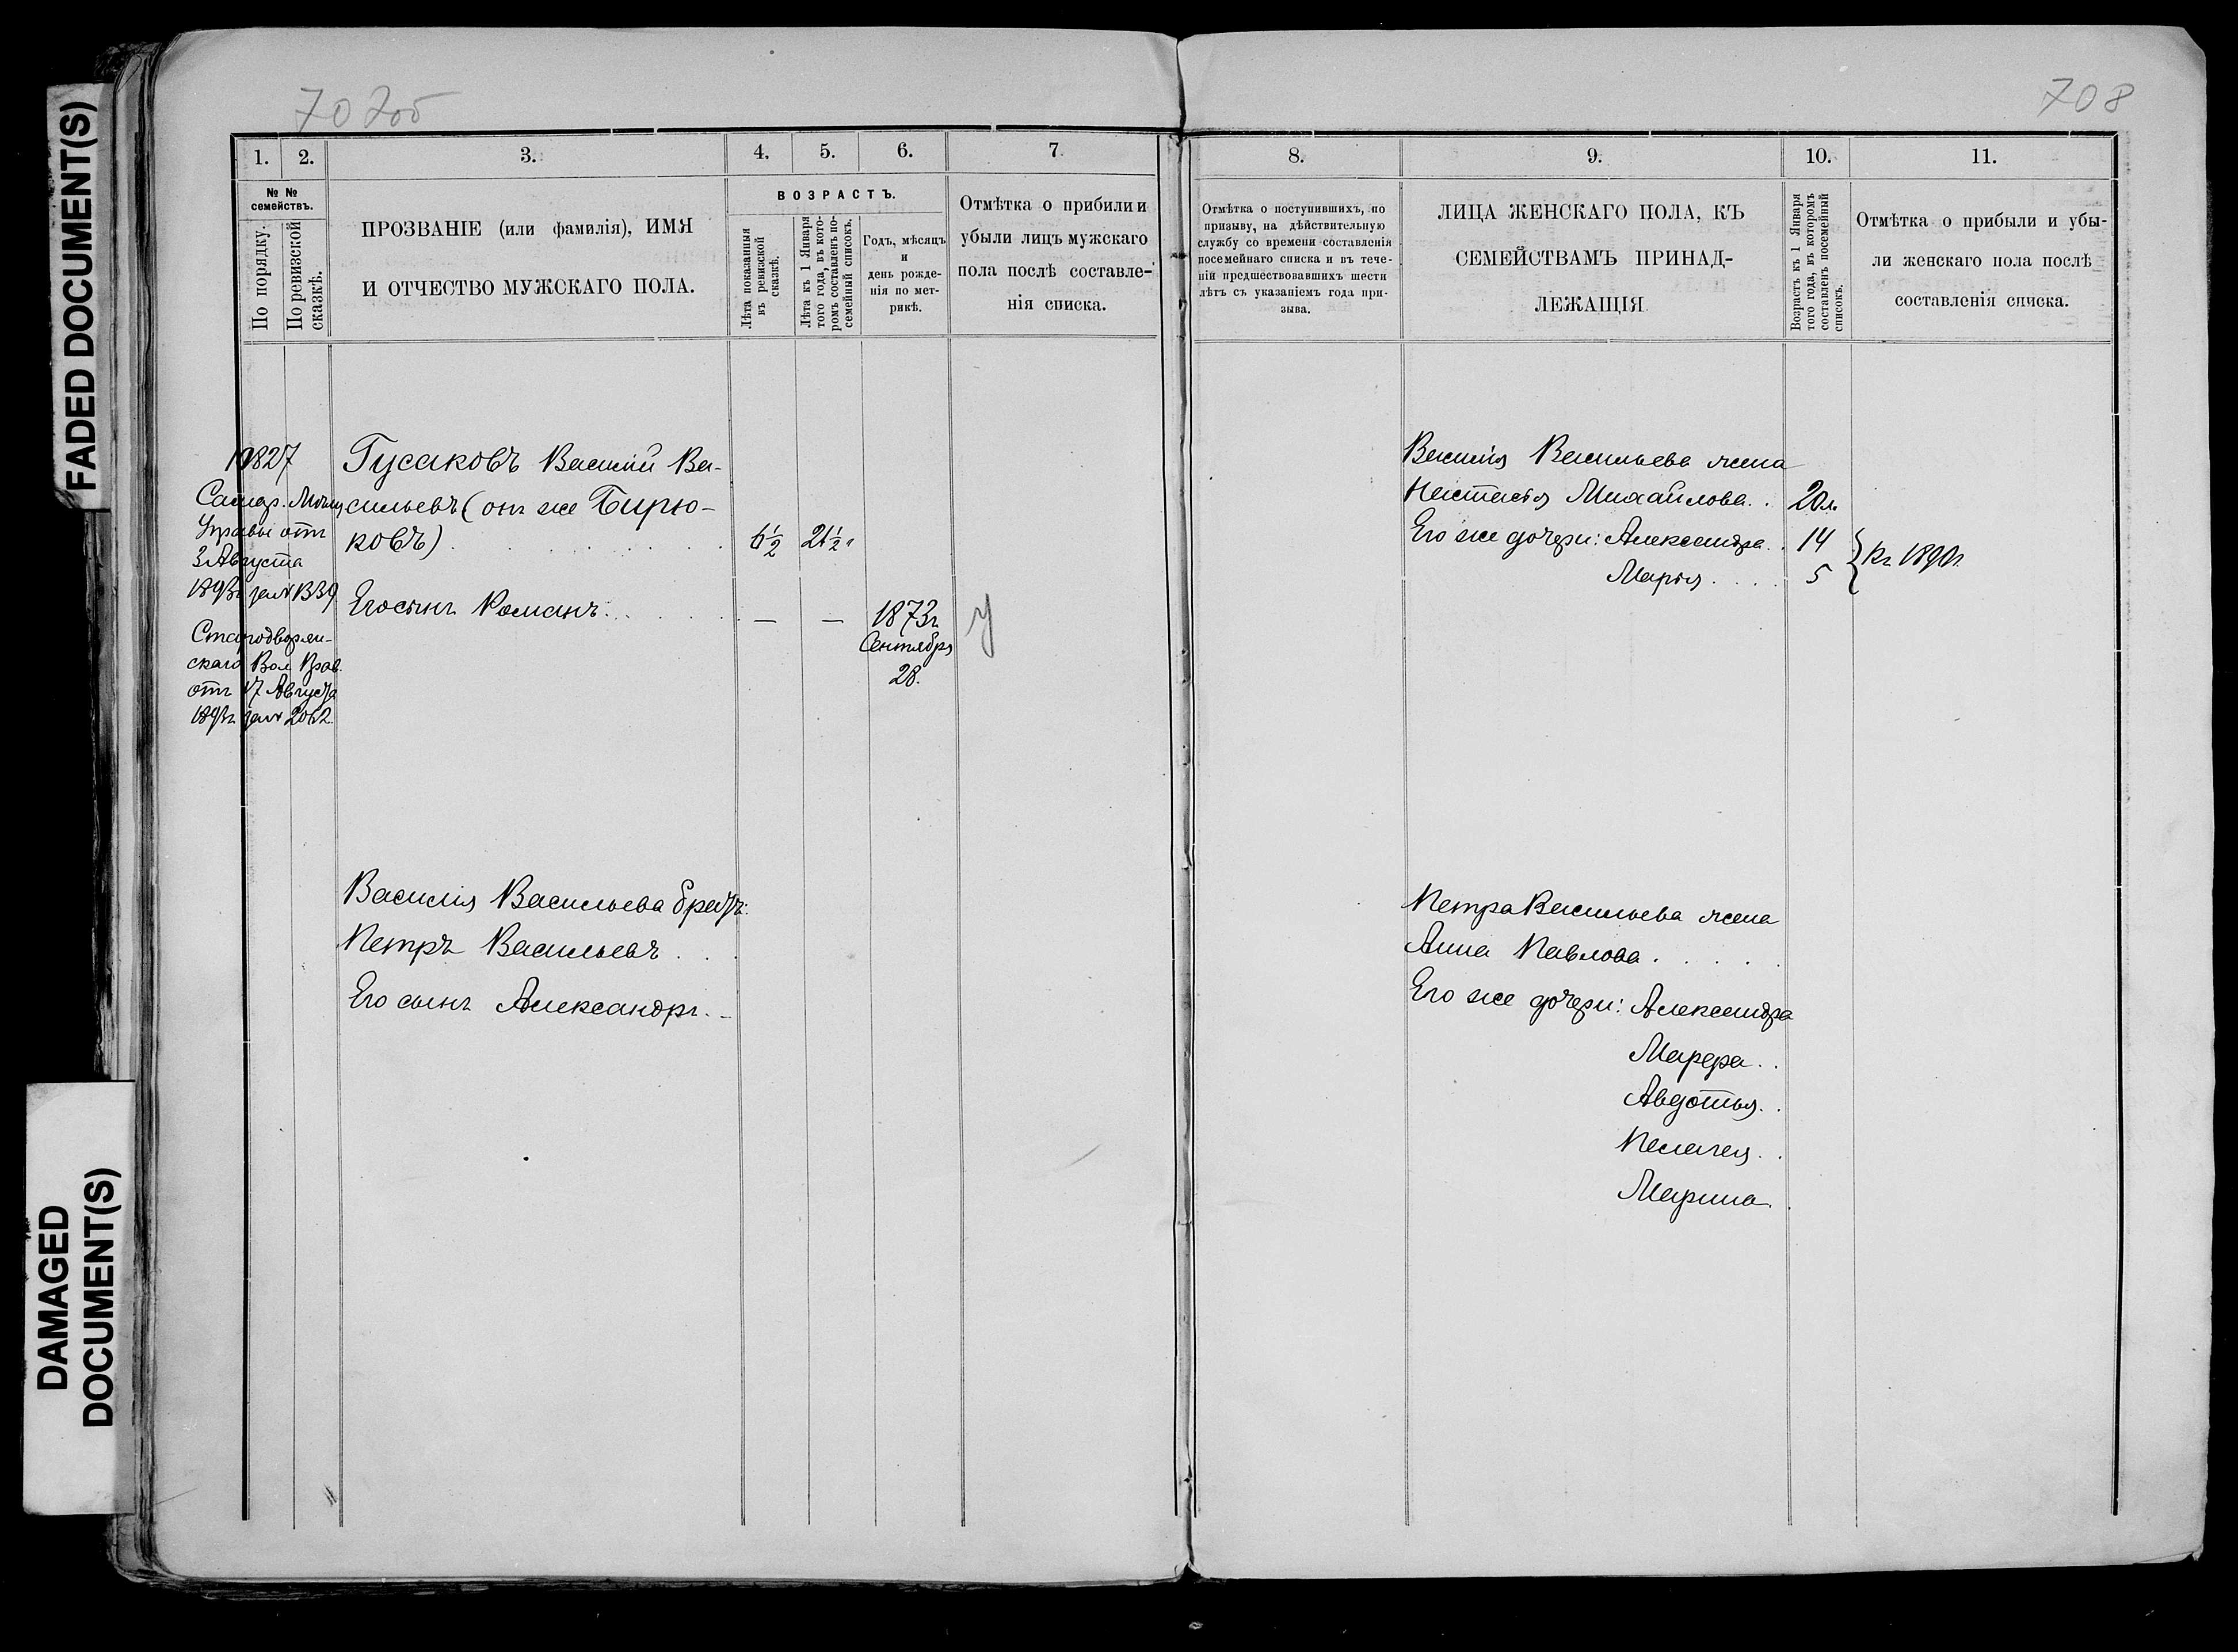 FADED DOCUMENT(S)
DAMAGED
DOCUMENT(S)
707об
1.
2.
3.
4.
5.
6.
7
№ №
семействъ.
По порядку.
По ревизской
сказкѣ.
ПРОЗВАНІЕ (или фамилія), ИМЯ
И ОТЧЕСТВО МУЖСКАГО ПОЛА.
ВОЗРАСТЪ.
Лѣта показанныя
въ ревизской
сказкѣ.
Лѣта къ 1 Января
того года, въ кото-
ромъ составленъ по-
семейный списокъ.
Годъ, мѣсяцъ
и
день рожде-
нія по мет-
рикѣ.
Отмѣтка о прибыли и
убыли лицъ мужскаго
пола послѣ составле-
нія списка.
1827
Самар. Мѣщ.
Управы отъ
3 Августа
1893г за № 1339
Стародворян-
скаго Вол. Прав.
отъ 17 Августа
1893г за № 2062
Гусаковъ Василій Ва-
сильевъ (онъ же Бирю-
ковъ) . . . 6½ 21½
Его сынъ Романъ . . . — — 1873г
Сентября
28.
У
Василія Васильева братъ:
Петръ Васильевъ . .
Его сынъ Александръ. –
708
8.
9.
10.
11.
Отмѣтка о поступившихъ, по
призыву, на дѣйствительную
службу со времени составленія
посемейнаго списка и въ тече-
ніи предшествовавшихъ шести
лѣтъ съ указаніемъ года при-
зыва.
ЛИЦА ЖЕНСКАГО ПОЛА, КЪ
СЕМЕЙСТВАМЪ ПРИНАД-
ЛЕЖАЩІЯ
Возрастъ къ 1 Января
того года, въ которомъ
составленъ посемейный
списокъ.
Отмѣтка о прибыли и убы-
ли женскаго пола послѣ
составленія списка.
Василія Васильева жена
Настасья Михайлова . . 20 л.
Его же дочери: Александра . 14
Марья . . . . 5
къ 1890г
Петра Васильева жена
Анна Павлова . . . . .
Его же дочери: Александра
Марѳа . .
Авдотья . .
Пелагея . .
Марина .